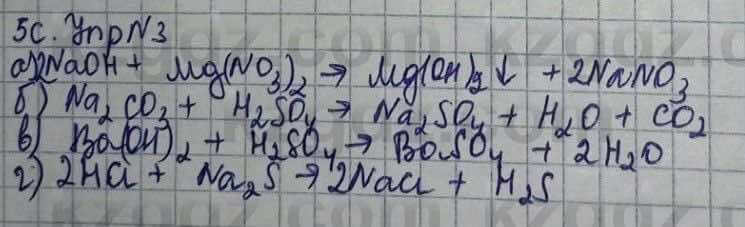 5с. Упр N3
а) 2NaOH + Mg(NO₃)₂ → Mg(OH)₂↓ + 2NaNO₃
б) Na₂CO₃ + H₂SO₄ → Na₂SO₄ + H₂O + CO₂
в) Ba(OH)₂ + H₂SO₄ → BaSO₄ + 2H₂O
г) 2HCl + Na₂S → 2NaCl + H₂S